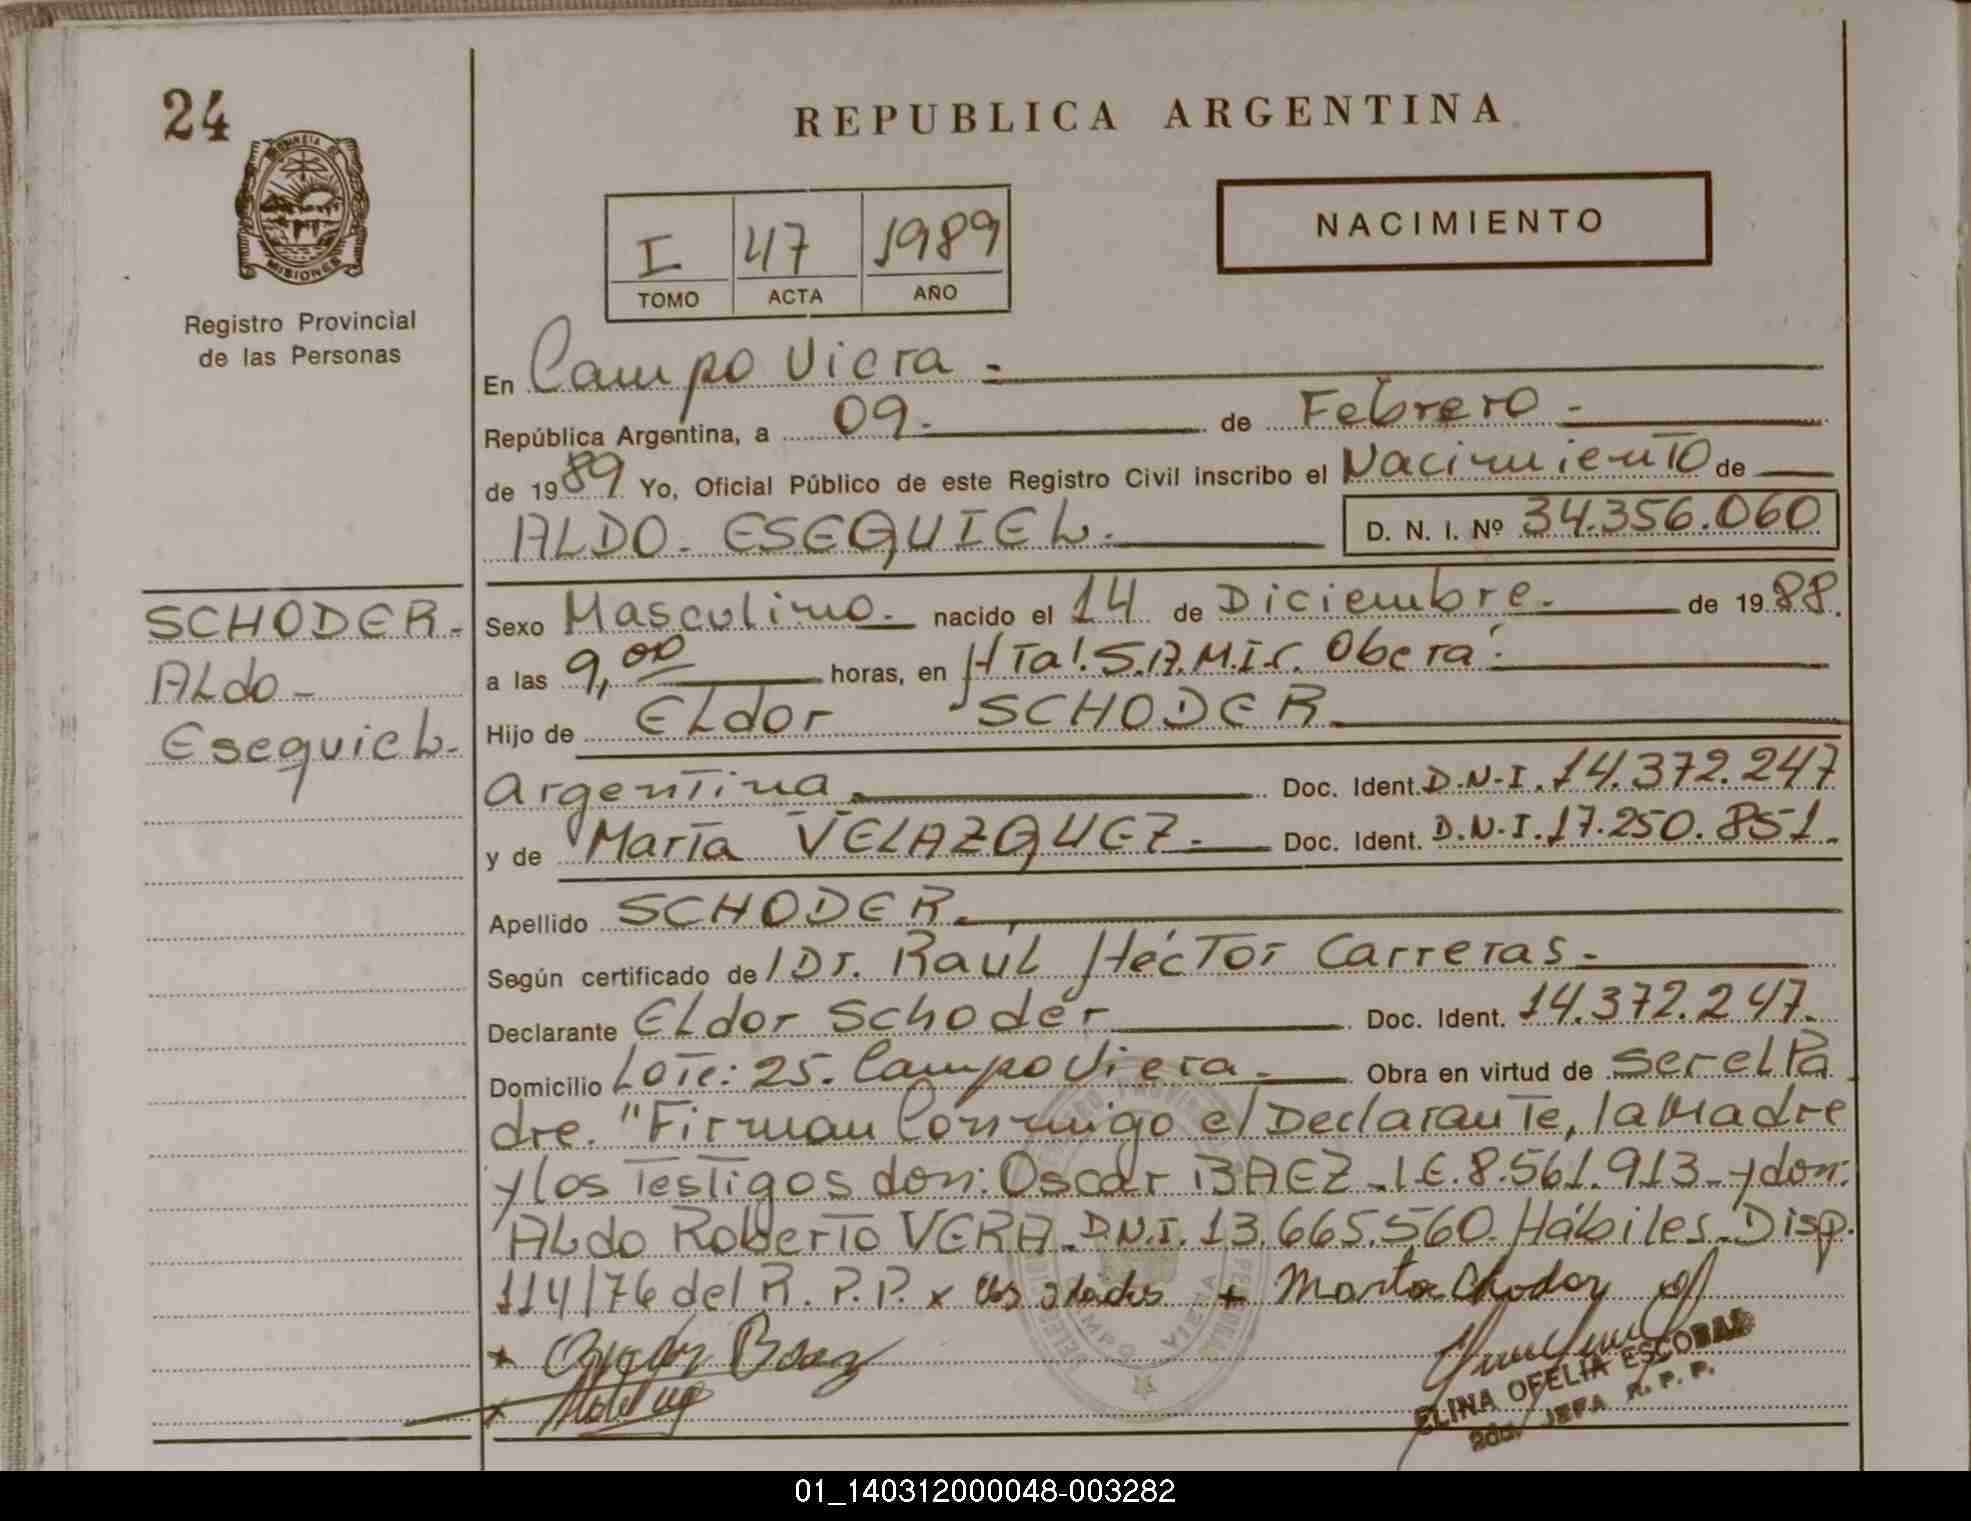 24
REPUBLICA ARGENTINA
PROVINCIA DE
MISIONES
Registro Provincial
de las Personas
I 47 1989
TOMO ACTA AÑO
NACIMIENTO
En Campo Viera -
República Argentina, a 09- de Febrero -
de 1989 Yo, Oficial Público de este Registro Civil inscribo el Nacimiento de
ALDO. ESEQUIEL.
D. N. I. Nº 34.356.060
SCHODER-
Aldo-
Esequiel-
Sexo Masculino. nacido el 14 de Diciembre. de 1988.
a las 9,00 horas, en Htal. S.A.M.I.C. Oberá.
Hijo de Eldor SCHODER
Argentina Doc. Ident. D.N.I. 14.372.247
y de María VELAZQUEZ.- Doc. Ident. D.N.I. 17.250.851.
Apellido SCHODER.
Según certificado de/Dr. Raúl Héctor Carreras.-
Declarante Eldor Schoder Doc. Ident. 14.372.247.
Domicilio Lote: 25. Campo Viera.- Obra en virtud de ser el Pa
dre. "Firman Conmigo el Declarante, la Madre
y los Testigos don: Oscar BAEZ - L.E. 8.561.913 - y don:
Aldo Roberto VERA. D.N.I. 13.665.560. Hábiles. Disp.
114/76 del R. P. P. x
+ Baez
ELINA OFELIA ESCOBAR
2da. JEFA R. P. P.
01_140312000048-003282